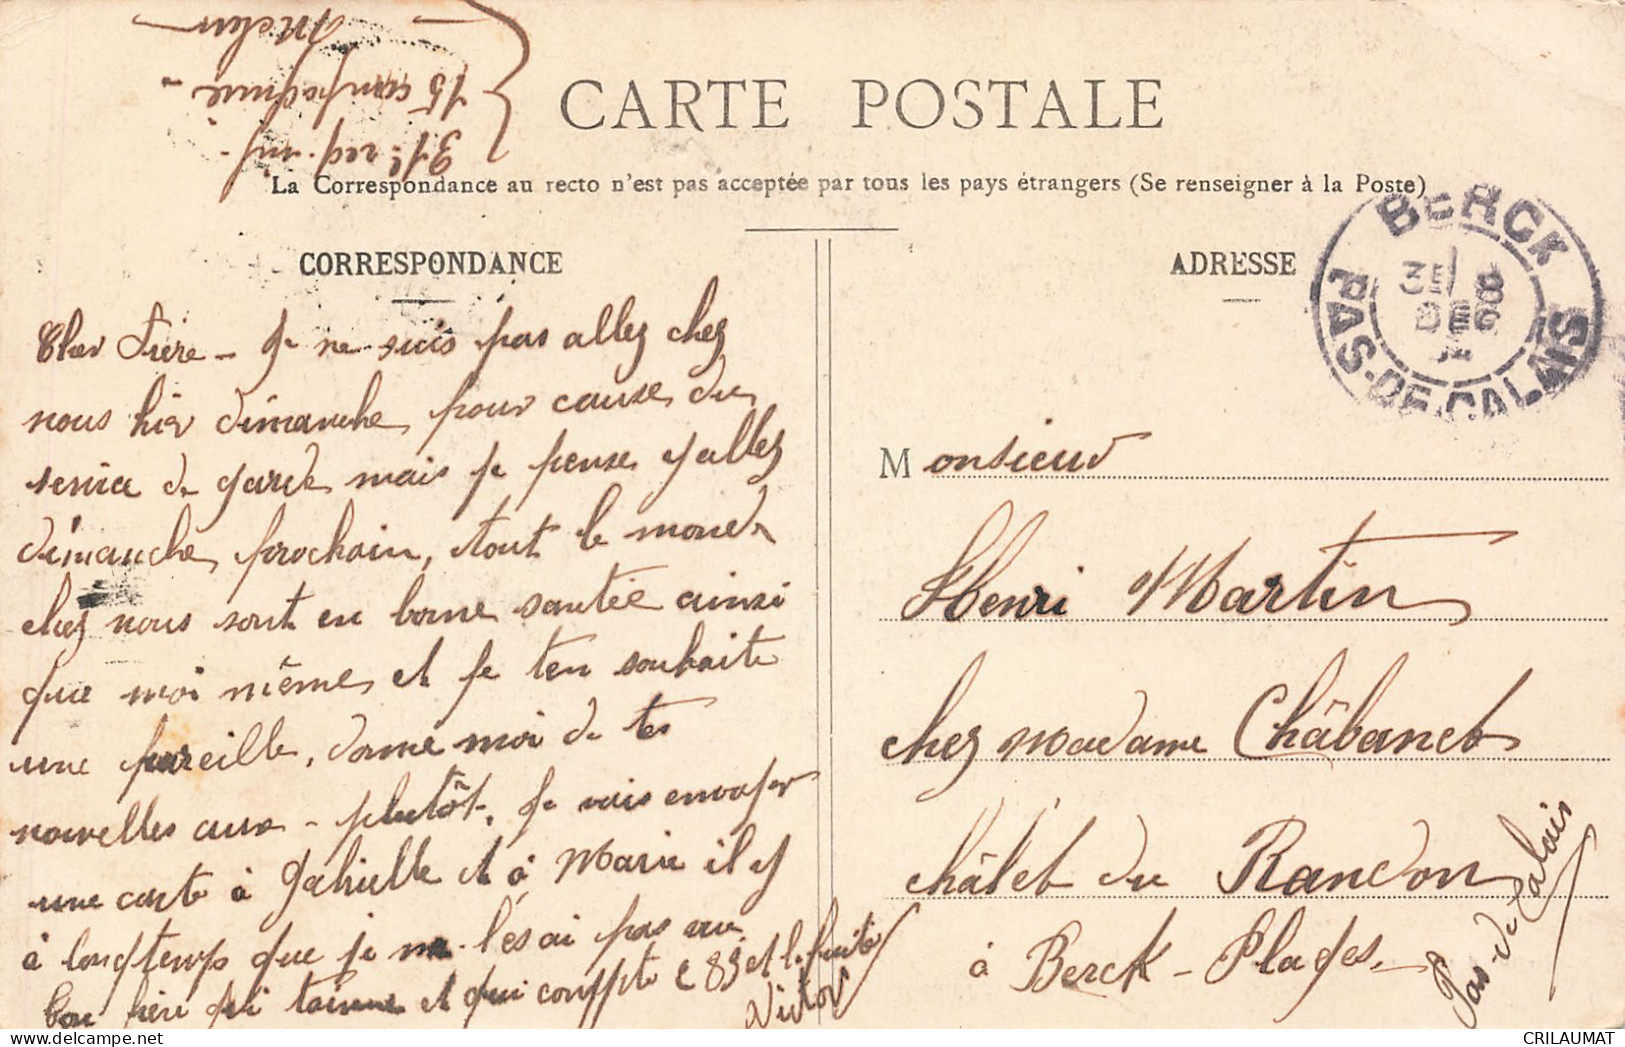 Melun
15 compagnie
31e reg. inf.
CARTE POSTALE
La Correspondance au recto n'est pas acceptée par tous les pays étrangers (Se renseigner à la Poste)
CORRESPONDANCE
Cher Frère - Je ne suis pas allez chez
nous hier dimanche pour cause du
service de garde mais je pense y allez
dimanche prochain, tout le monde
chez nous sont en bonne santée ainsi
que moi même et je t'en souhaite
une pareille, donne moi de tes
nouvelles aux plutôt, je vais envoyer
une carte à Gabrielle et à Marie il y
à longtemps que je ne l'ésai pas vue
ton frère qui t'aime et qui compte 285 et la fuite
Victor
ADRESSE
BERCK
PAS-DE-CALAIS
8
DEC
Monsieur
Henri Martin
chez Madame Châbanet
châlet du Randon
à Berck-Plages
Pas-de-Calais
CRILAUMAT